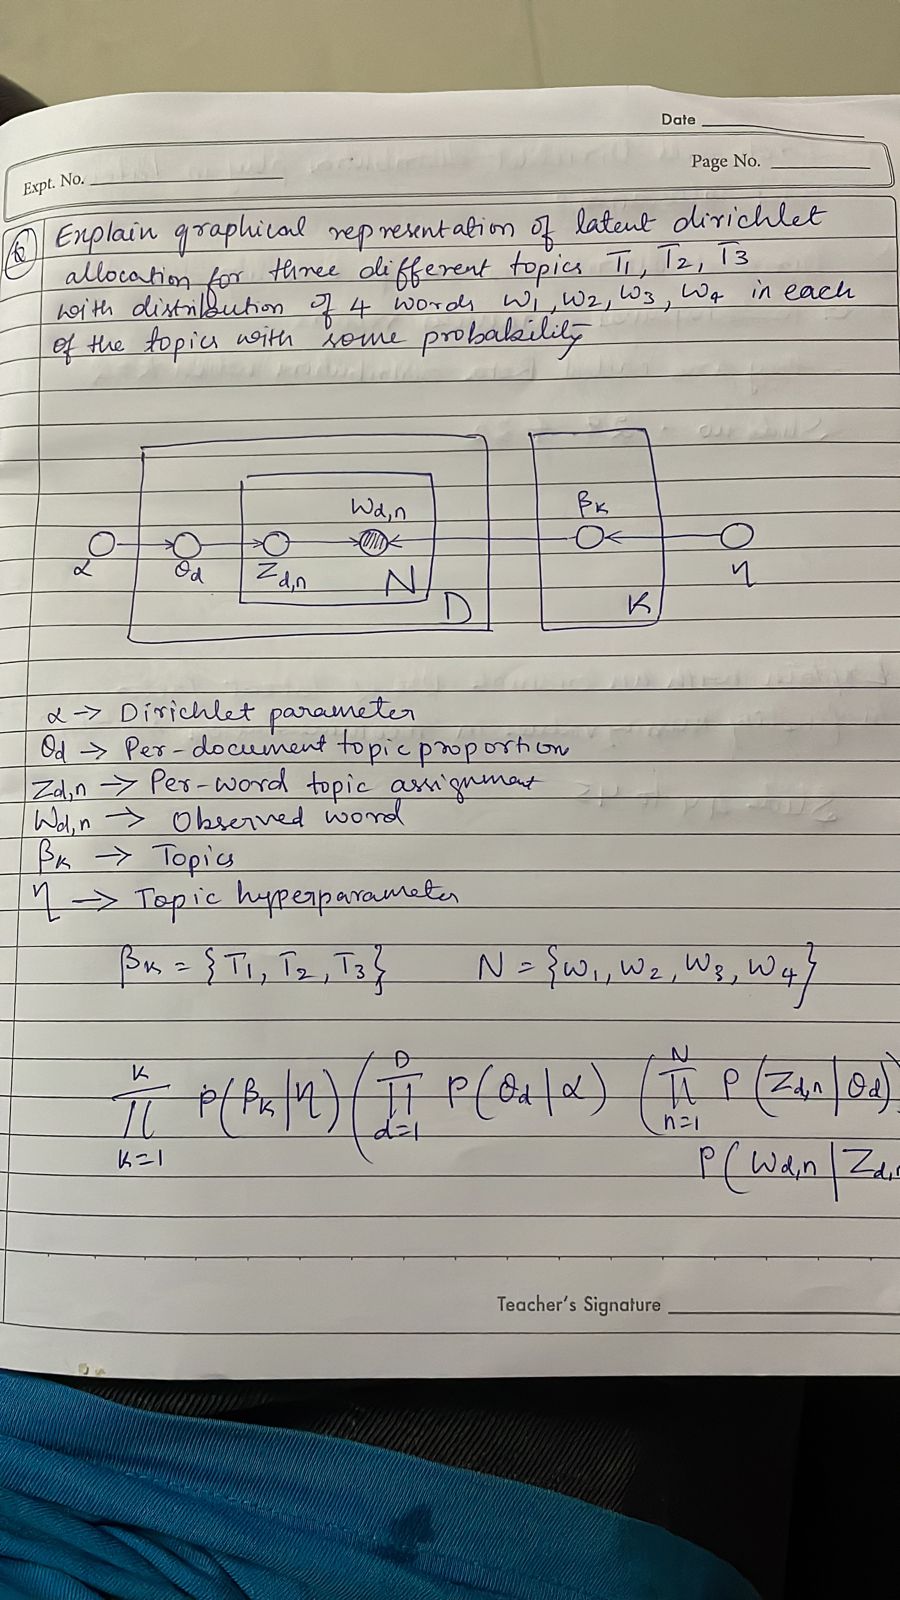 Date
Expt. No.
Page No.
Q Explain graphical representation of latent dirichlet
allocation for three different topics T1, T2, T3
with distribution of 4 words W1, W2, W3, W4 in each
of the topics with some probability
Wd,n
βK
α
θd
Zd,n
N
D
K
η
α → Dirichlet parameter
θd → Per-document topic proportion
Zd,n → Per-word topic assignment
Wd,n → Observed word
βK → Topics
η → Topic hyperparameter
βK = {T1, T2, T3} N = {W1, W2, W3, W4}
K ∏ K=1 P(βK|η) (D ∏ d=1 P(θd|α) (N ∏ n=1 P(Zd,n|θd)
P(Wd,n|Zd,
Teacher's Signature